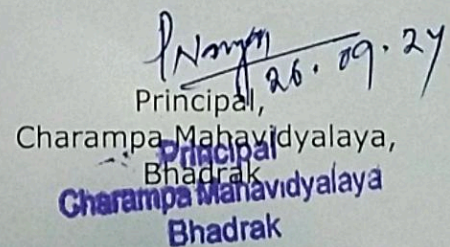 26.09.24
Principal,
Charampa Mahavidyalaya,
Bhadrak
Principal
Charampa Mahavidyalaya
Bhadrak